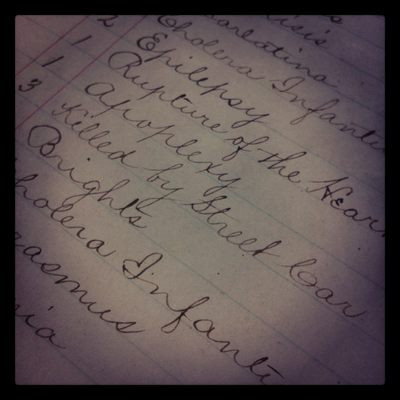 isis
carlatina
Cholera Infantu
2 Epilepsy
1 Rupture of the Hear
1 Apoplexy
3 Killed by Street Car
Brights
holera Infanti
asmus
ia